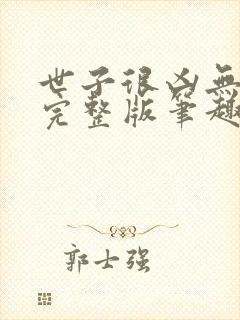 世子很凶無
完整版笔趣
郭士强